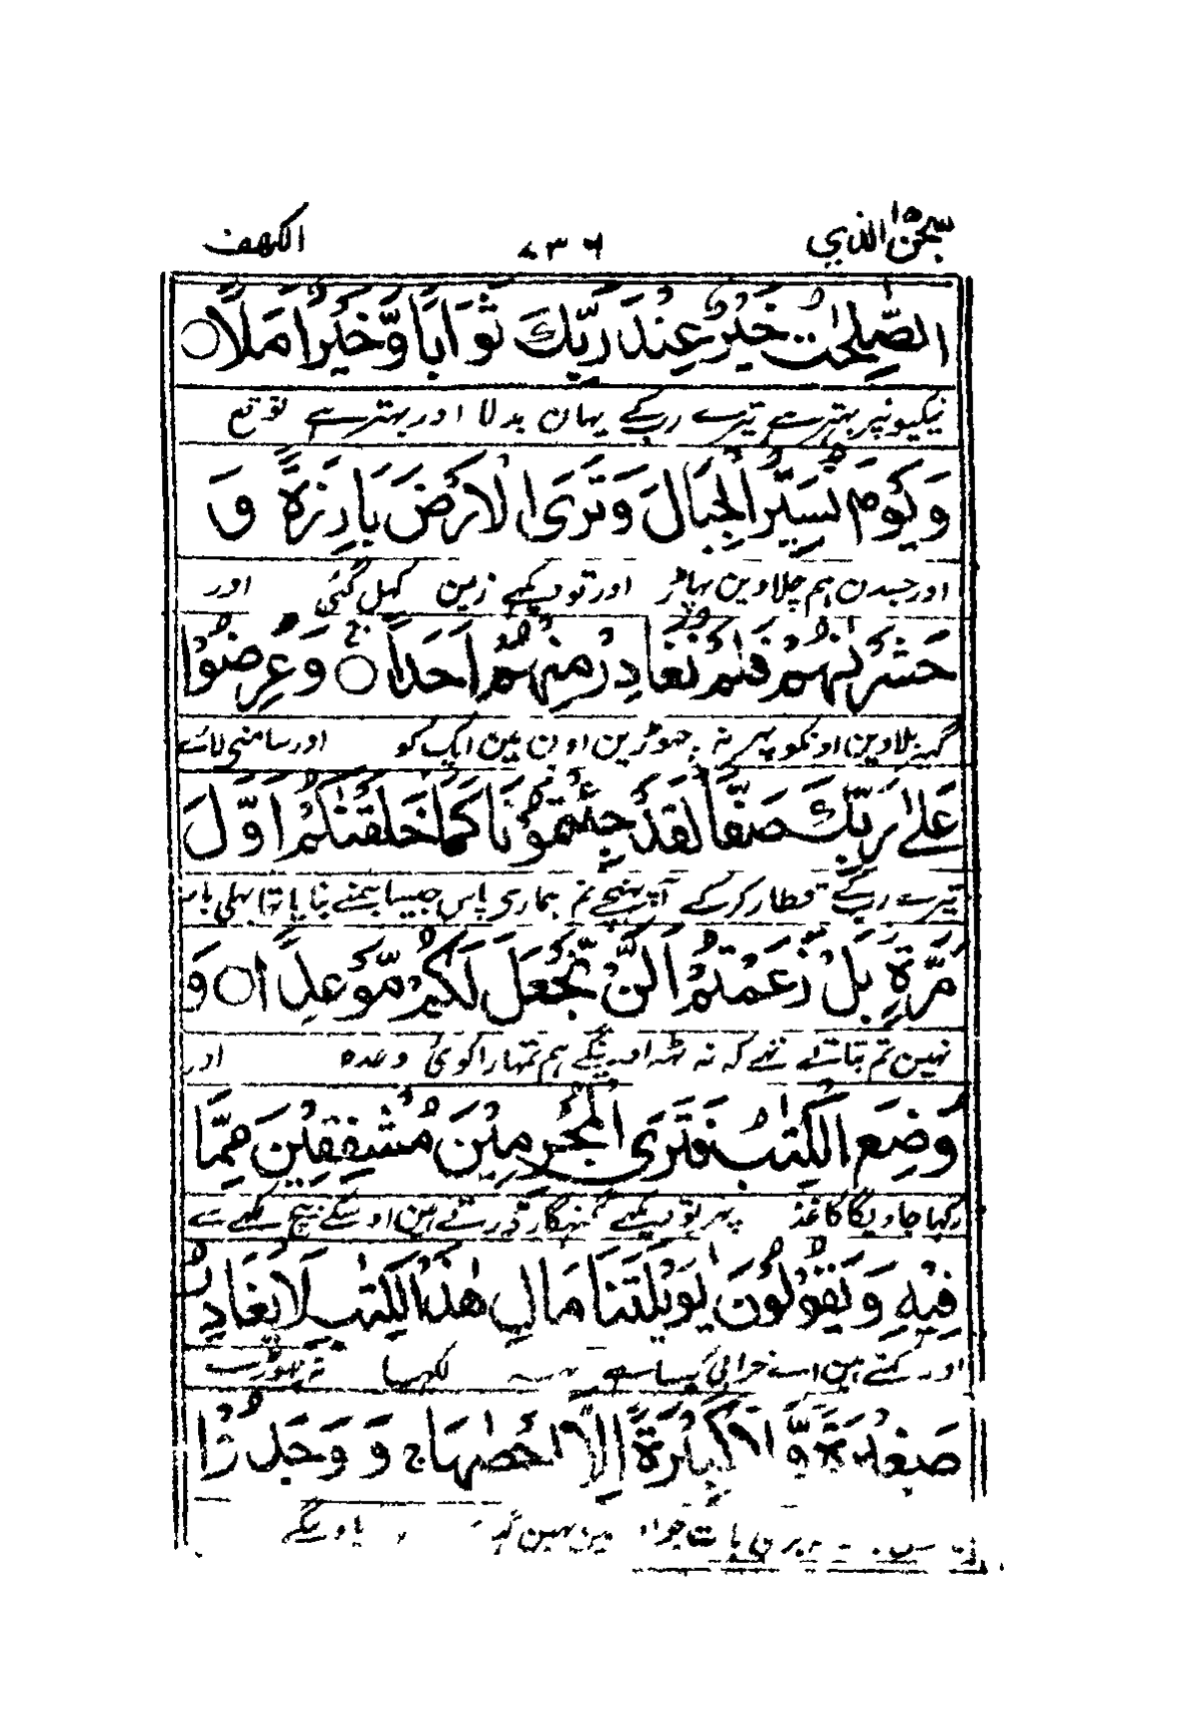 سبحن الذي ۱۵ ۴۳۶ الكهف
الصّٰلِحٰتُ خَيْرٌ عِنْدَ رَبِّكَ ثَوَابًا وَّخَيْرٌ اَمَلًا ○
نیکیونپر بہتر ہے تیرے رب کے یہان بدلا اور بہتر ہے توقع
وَيَوْمَ نُسَيِّرُ الْجِبَالَ وَتَرَى الْاَرْضَ بَارِزَةً وَّ
اور جسدن ہم چلاوین پہاڑ اور تو دیکہے زمین کہل گئی اور
حَشَرْنٰهُمْ فَلَمْ نُغَادِرْ مِنْهُمْ اَحَدًا ○ وَعُرِضُوْا
گہیر بلاوین اونکو پہر نہ چہوڑین اون مین ایک کو اور سامنی لائے
عَلٰى رَبِّكَ صَفًّا لَقَدْ جِئْتُمُوْنَا كَمَا خَلَقْنٰكُمْ اَوَّلَ
تیرے رب کے قطار کر کے آ پہنچے تم ہماری پاس جیسا ہمنے بنایا تہا پہلی بار
مَرَّةٍ بَلْ زَعَمْتُمْ اَلَّنْ نَّجْعَلَ لَكُمْ مَّوْعِدًا ○ وَ
نہین تم بتاتے تہے کہ نہ ٹہراوینگے ہم تمہارا کوئی وعدہ اور
وُضِعَ الْكِتٰبُ فَتَرَى الْمُجْرِمِيْنَ مُشْفِقِيْنَ مِمَّا
رکہا جاویگا کاغذ پہر تو دیکہے گنہگار ڈرتے ہین اوسکے بیچ لکہے سے
فِيْهِ وَيَقُوْلُوْنَ يٰوَيْلَتَنَا مَالِ هٰذَا الْكِتٰبِ لَا يُغَادِرُ
اور کہتے ہین اے خرابی کیسا ہے یہہ لکہا نہ چہوڑے
صَغِيْرَةً وَّلَا كَبِيْرَةً اِلَّا اَحْصٰهَا ج وَوَجَدُوْا
بڑی بات جو نہین پاوینگے